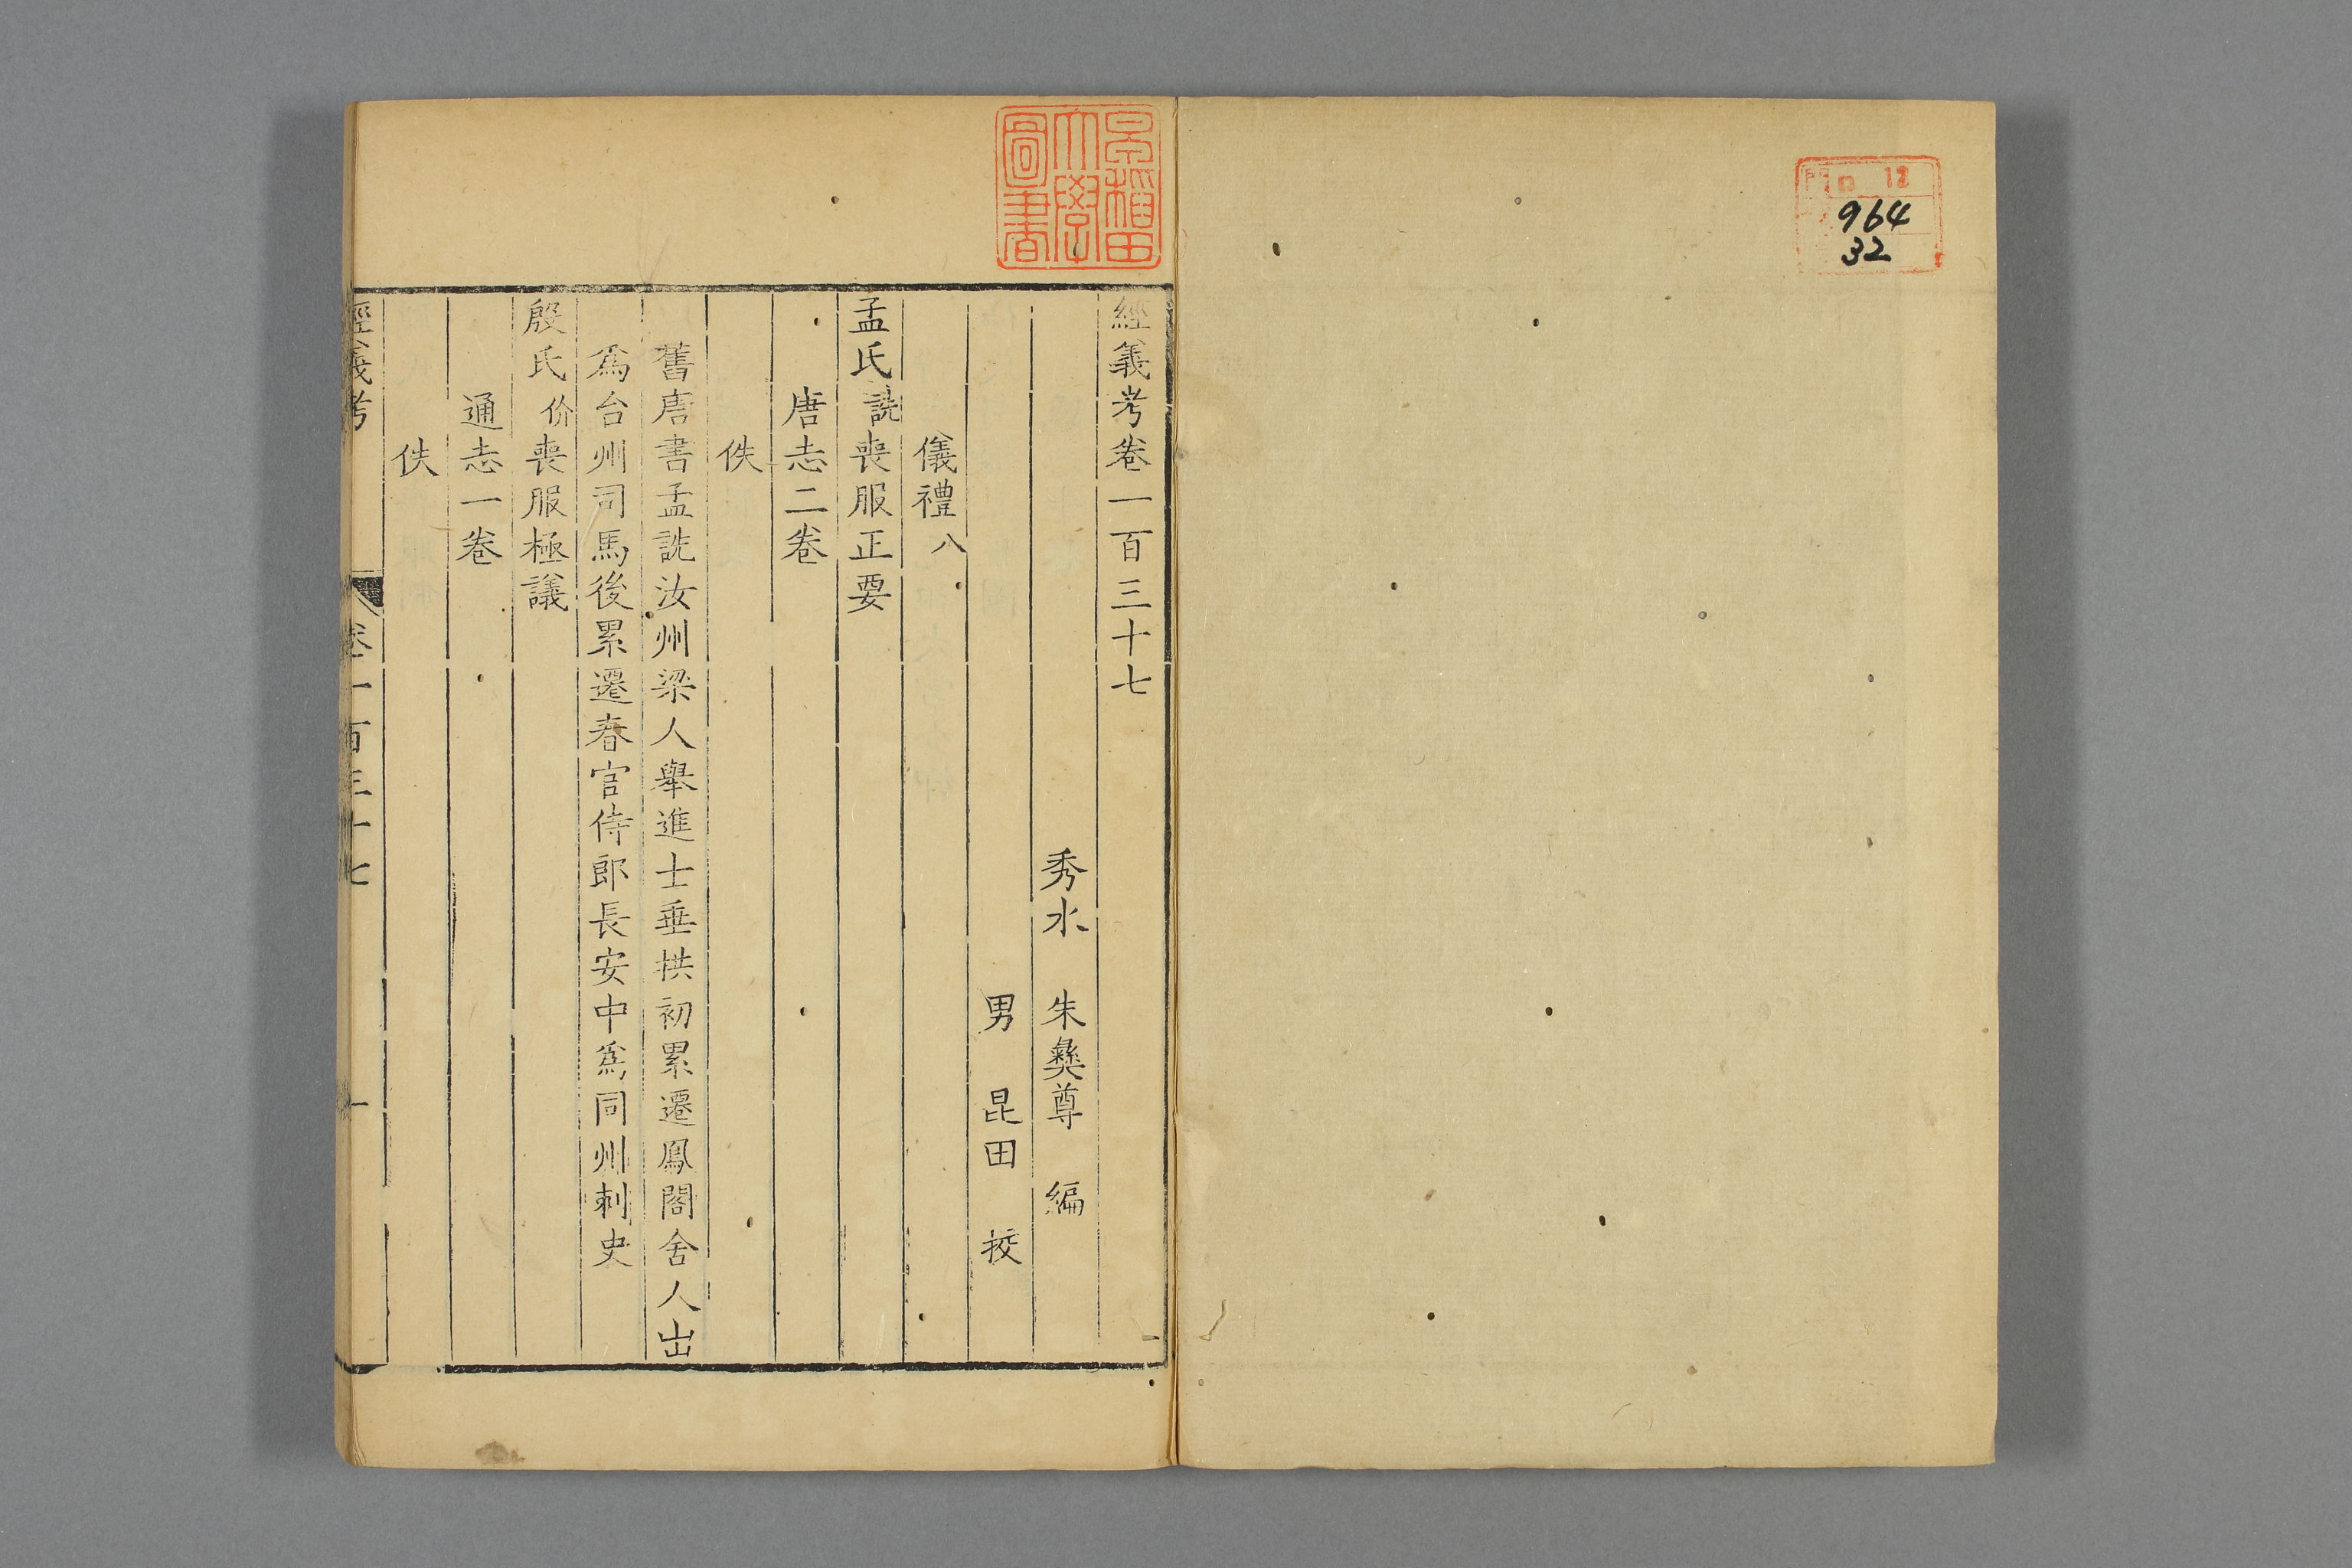 門 ロ 12
964
32
早稲田
大學
圖書
經義考卷一百三十七
秀水 朱彝尊 編
男 昆田 挍
儀禮八
孟氏詵喪服正要
唐志二卷
佚
舊唐書孟詵汝州梁人舉進士垂拱初累遷鳳閣舍人出
爲台州司馬後累遷春官侍郎長安中爲同州刺史
殷氏价喪服極議
通志一卷
佚
經義考 卷一百三十七 一